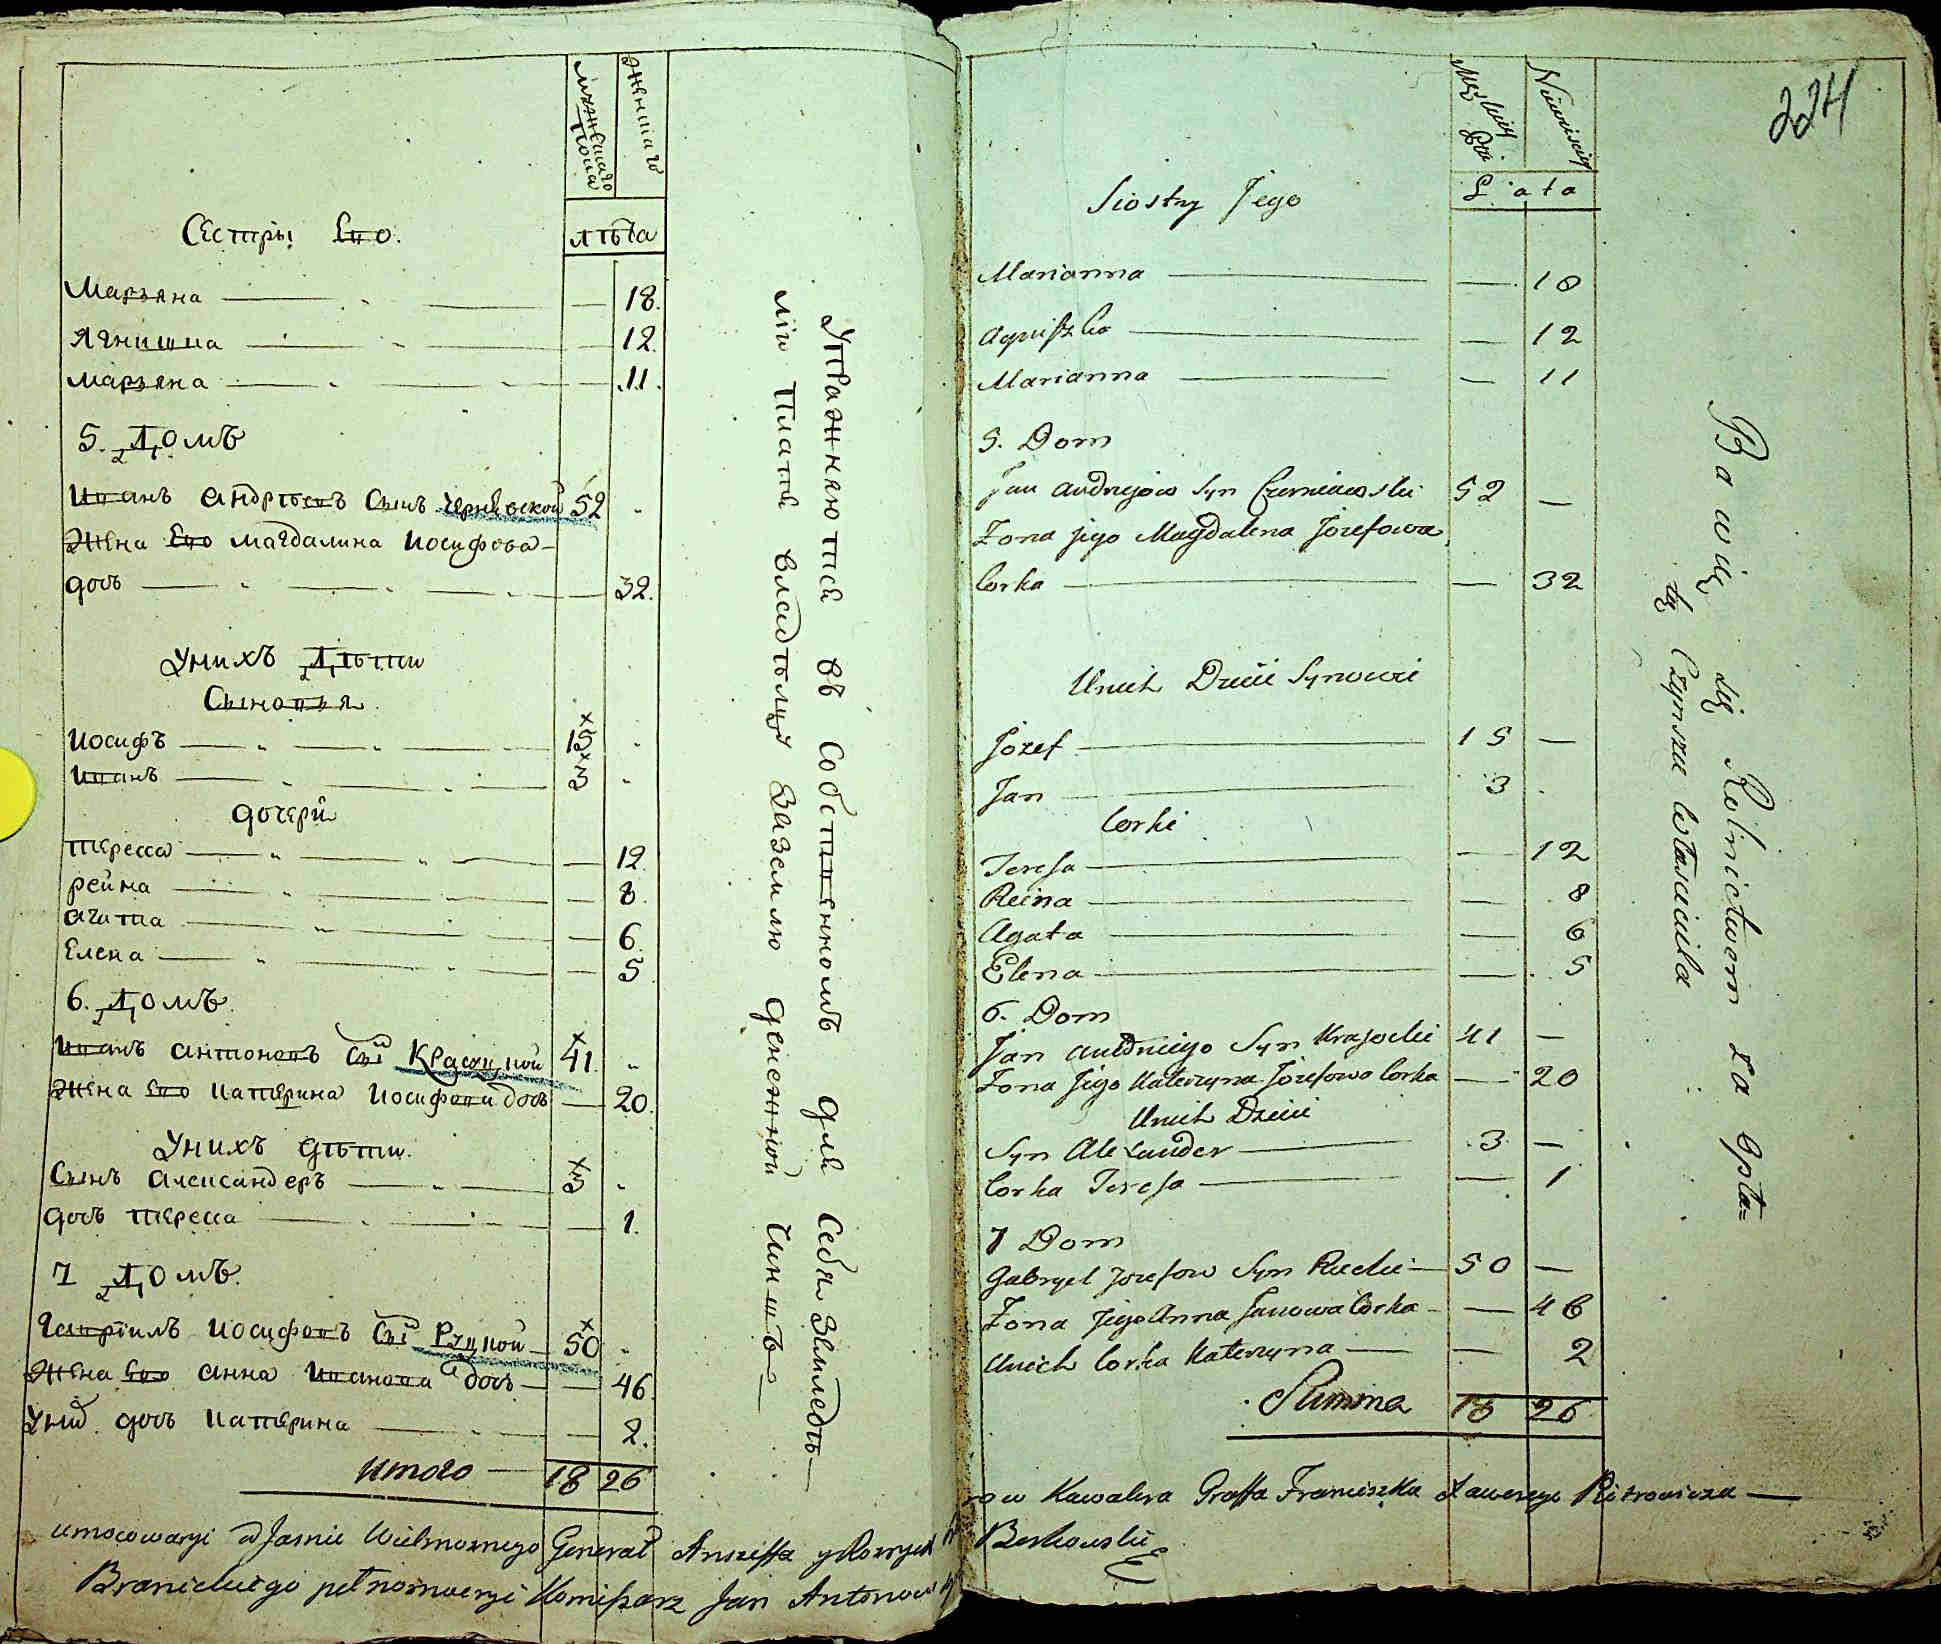 мужескаго пола
женскаго
лѣта
Сестры Его.
Марьяна 18.
Ягнишка 12.
Марьяна 11.
5. Домъ
Иванъ Андрѣевъ Сынъ Чернѣвской 52
Жена Его Магдалина Иосифова
дочь 32.
У нихъ Дѣти
Сыновья
Иосифъ 15
Иванъ 3
дочери
Тересса 12
рейна 8.
агата 6.
Елена 5
6. Домъ.
Иванъ Антоновъ Сынъ Красуцкой 41
Жена Его Катерина Иосифова дочь 20.
У нихъ дѣти.
Сынъ Александеръ 3
дочь Тересса 1.
7 Домъ.
Гавріилъ Иосифовъ Сынъ Руцкой 50
Жена Его Анна Иванова дочь 46
У них дочь Катерина 2.
Итого 18 26
Упражняются въ Собственномъ для Себя Земледѣ
ліи Платя владѣльцу за землю денежной Чиншъ
umocowanyi od Jasnie Wielmoznego Generał Anszeffa y Roznych
Branickiego pełnomocnyi Komissarz Jan Antonow
224
Męskiey Płci
Niewieściey
Lata
Siostry Jego
Marianna — 18
Agniszka — 12
Marianna — 11
5. Dom
Jan Andrzejow Syn Czerniawski 52 —
Zona jego Magdalena Jozefowa
Corka — 32
U nich Dzieci Synowie
Jozef 15 —
Jan 3
Corki
Teresa — 12
Reina — 8
Agata — 6
Elena — 5
6. Dom
Jan Syn Krasocki 41 —
Zona Jego Katerzyna Jozefowa Corka — 20
U nich Dzieci
Syn Alexander 3 —
Corka Teresa — 1
7 Dom
Gabryel Jozefow Syn Rucki 50 —
Zona Jego Anna Janowa Corka — 46
U nich Corka Katerzyna — 2
Summa 18 26
Bawią się Rolnictwem za Opła=
tą Czynszu Własciciela
row Kawalera Graffa Franciszka Xawerego Pietrowicza
Berkowski